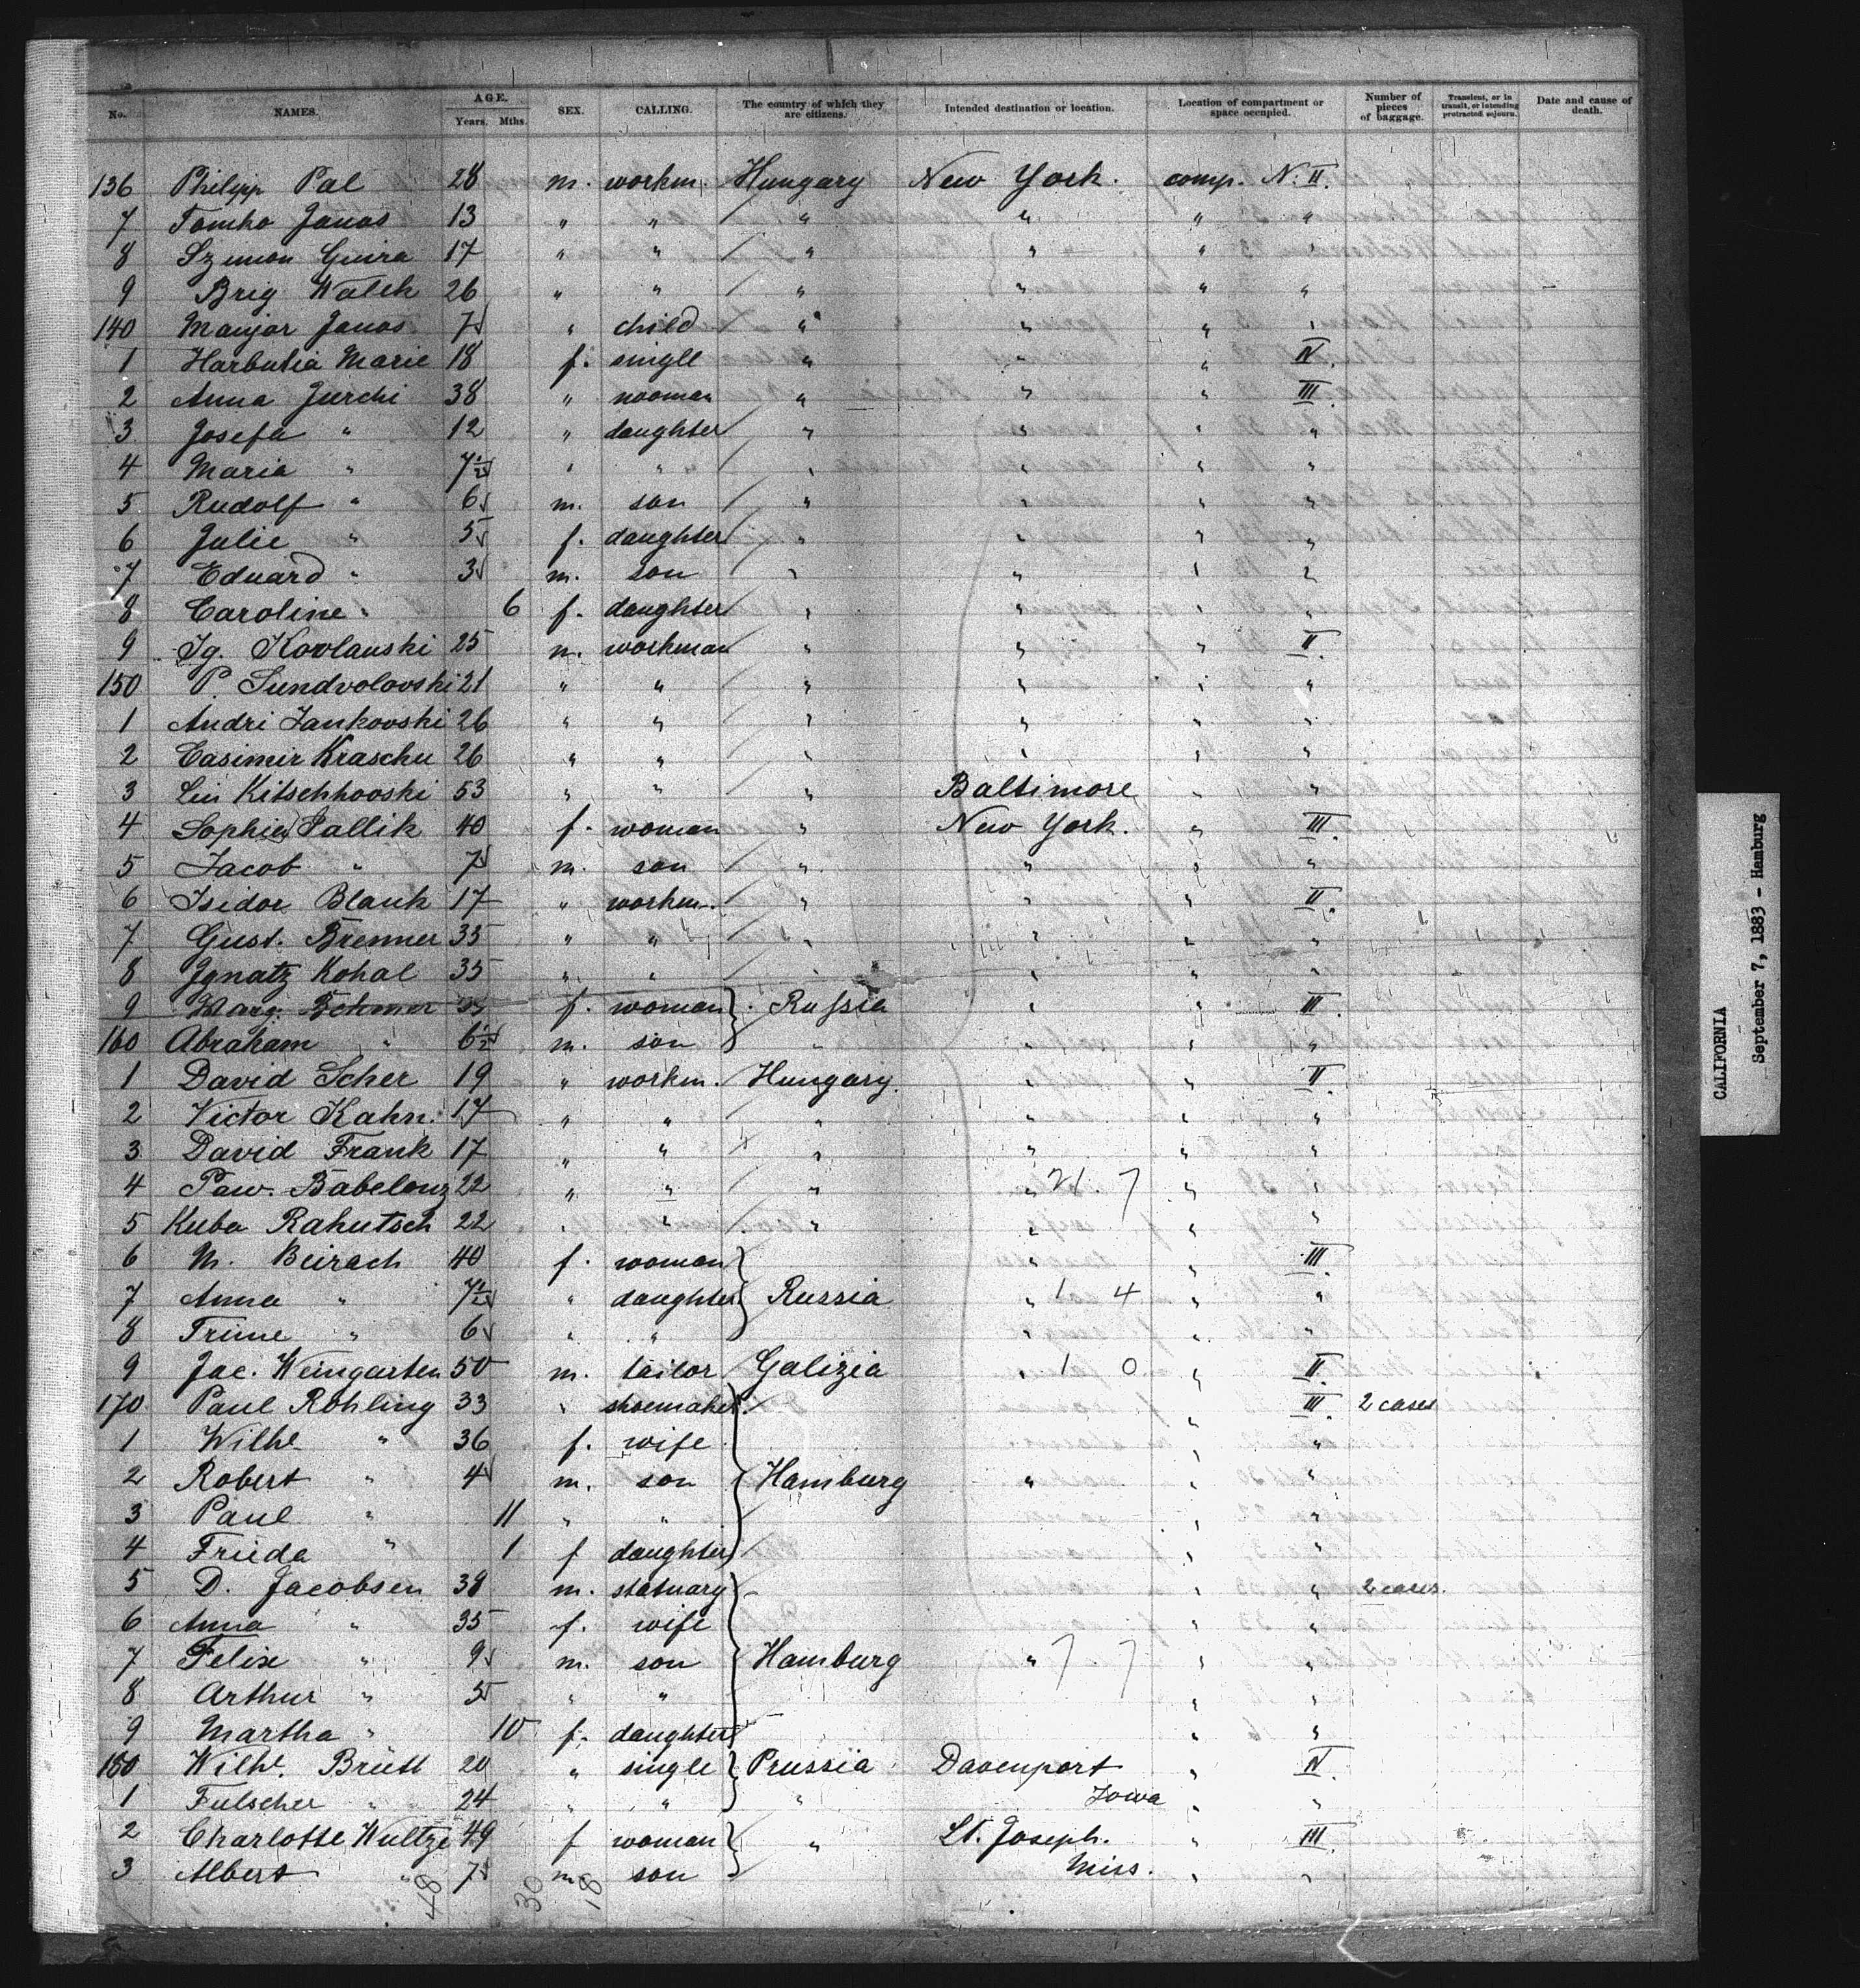 No. NAMES. AGE. Years. Mths. SEX. CALLING. The country of which they are citizens. Intended destination or location. Location of compartment or space occupied. Number of pieces of baggage. Transient, or in transit, or intending protracted sojourn. Date and cause of death.
136 Philipp Pal 28 m. workm. Hungary New York. comp. N. II.
7 Tomko Janos 13 " " " " " "
8 Szimon 17 " " " " " "
9 Brig Walek 26 " " " " " "
140 Janos 7 " child " " " "
1 Marie 18 f. single " " " IV.
2 Anna Jurchi 38 " wooman " " " III.
3 Josefa " 12 " daughter " " " "
4 Maria " 7½ " " " " " "
5 Rudolf " 6 m. son " " " "
6 Julie " 5 f. daughter " " " "
7 Eduard " 3 m. son " " " "
8 Caroline " 6 f. daughter " " " "
9 Ig. Kovlanski 25 m. workman " " " II.
150 P. Sundvolovski 21 " " " " " "
1 Andri Jankovski 26 " " " " " "
2 Casimir Kraschu 26 " " " " " "
3 53 " " " Baltimore " "
4 Sophia Pallik 40 f. woman " New York. " III.
5 Jacob " 7 m. son " " " "
6 Isidor Blank 17 " workm. " " " II.
7 Gust. Brenner 35 " " " " " "
8 Ignatz Kohal 35 " " " " " "
9 Marg. f. woman Russia " " III.
160 Abraham " 6½ m. son " " " "
1 David Scher 19 " workm. Hungary. " " II.
2 Victor Kahn. 17 " " " " " "
3 David Frank 17 " " " " " "
4 Paw. Babelonz 22 " " " " 21. 7 " "
5 Kuba Rahutsch 22 " " " " " "
6 M. Beirach 40 f. woman " " III.
7 Anna " 7½ " daughter Russia " 1 4 " "
8 Trime " 6 " " " " "
9 Jac. Weingarten 50 m. tailor Galizia " 1 0 " II.
170 Paul Röhling 33 " shoemaker " III. 2 cases
1 Wilhe " 36 f. wife " "
2 Robert " 4 m. son Hamburg " " "
3 Paul " 11 " " " "
4 Frieda " 1 f daughter " "
5 D. Jacobsen 38 m. statuary " " 2 cases.
6 Anna " 35 f. wife " "
7 Felix " 9 m. son Hamburg " 7 7 " "
8 Arthur " 5 " " " "
9 Martha " 10 f. daughter " "
180 Wilhe. Brütt 20 " single Prussia Davenport " IV.
1 " 24 " " " Iowa " "
2 Charlotte Wultze 49 f woman " St. Joseph. " III.
3 Albert " 7 m. son Miss. " "
48 30 18
CALIFORNIA
September 7, 1883 - Hamburg